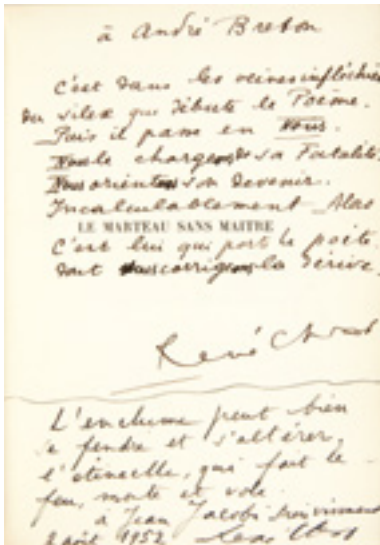 à André Breton
C'est dans les veines infléchies
du silex que débute le Poème.
Puis il passe en nous.
Nous le chargeons de sa Fatalité.
Nous orientons son devenir.
Incalculablement
LE MARTEAU SANS MAITRE
C'est lui qui part le poète
dont nous corrigeons la dérive
René Char
L'enclume peut bien
se fendre et s'altérer,
l'étincelle, qui fait le
feu, monte et vole.
à Jean Jacobs
2 août 1952 René Char